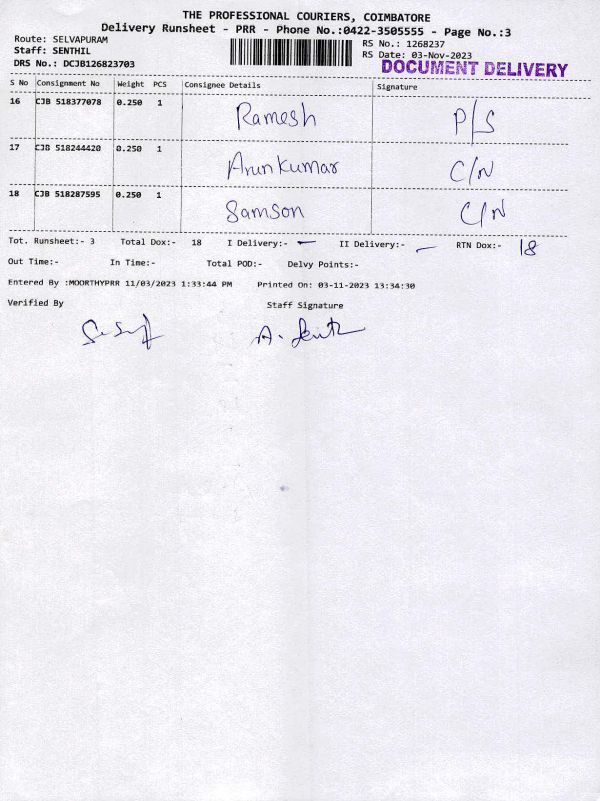 THE PROFESSIONAL COURIERS, COIMBATORE
Delivery Runsheet - PRR - Phone No.:0422-3505555 - Page No.:3
Route: SELVAPURAM RS No.: 1268237
Staff: SENTHIL RS Date: 03-Nov-2023
DRS No.: DCJB126823703 DOCUMENT DELIVERY
S No Consignment No Weight PCS Consignee Details Signature
16 CJB 518377078 0.250 1 Ramesh P/S
17 CJB 518244420 0.250 1 Arunkumar C/N
18 CJB 518287595 0.250 1 Samson C/N
Tot. Runsheet:- 3 Total Dox:- 18 I Delivery:- — II Delivery:- — RTN Dox:- 18
Out Time:- In Time:- Total POD:- Delvy Points:-
Entered By :MOORTHYPRR 11/03/2023 1:33:44 PM Printed On: 03-11-2023 13:34:30
Verified By Staff Signature